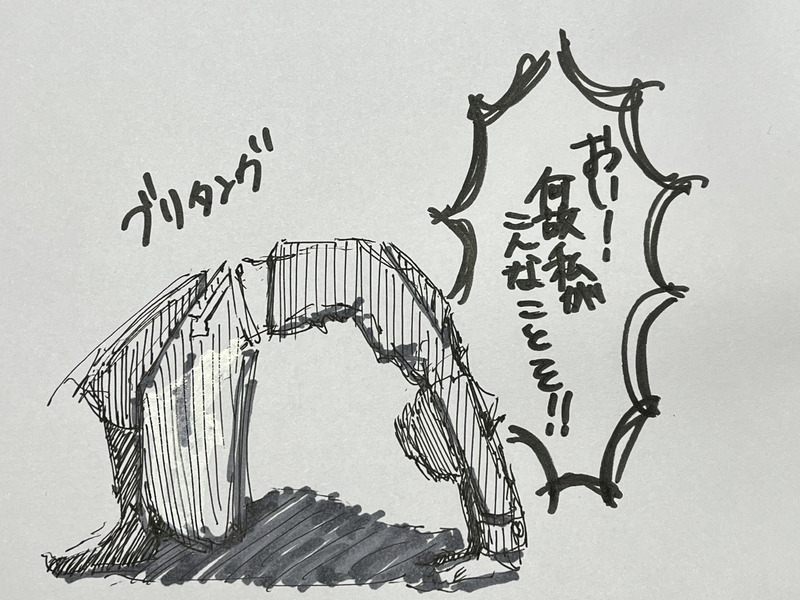 おーー!
何故私が
こんなことを!!
ブリタング